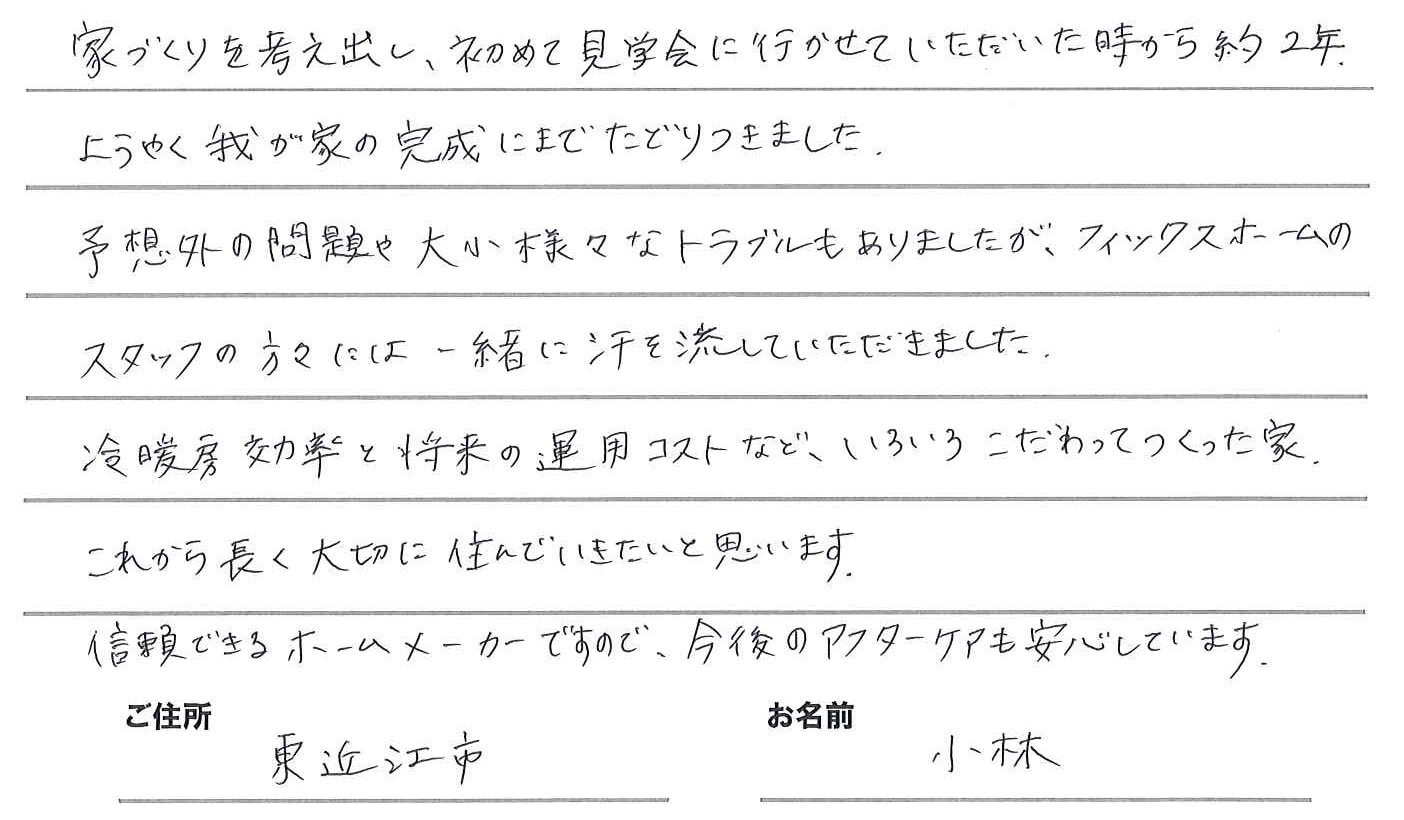 家づくりを考え出し、初めて見学会に行かせていただいた時から約2年.
ようやく我が家の完成にまでたどりつきました.
予想外の問題や大小様々なトラブルもありましたが、フィックスホームの
スタッフの方々には一緒に汗を流していただきました.
冷暖房効率と将来の運用コストなど、いろいろこだわってつくった家.
これから長く大切に住んでいきたいと思います.
信頼できるホームメーカーですので、今後のアフターケアも安心しています.
ご住所 お名前
東近江市 小林